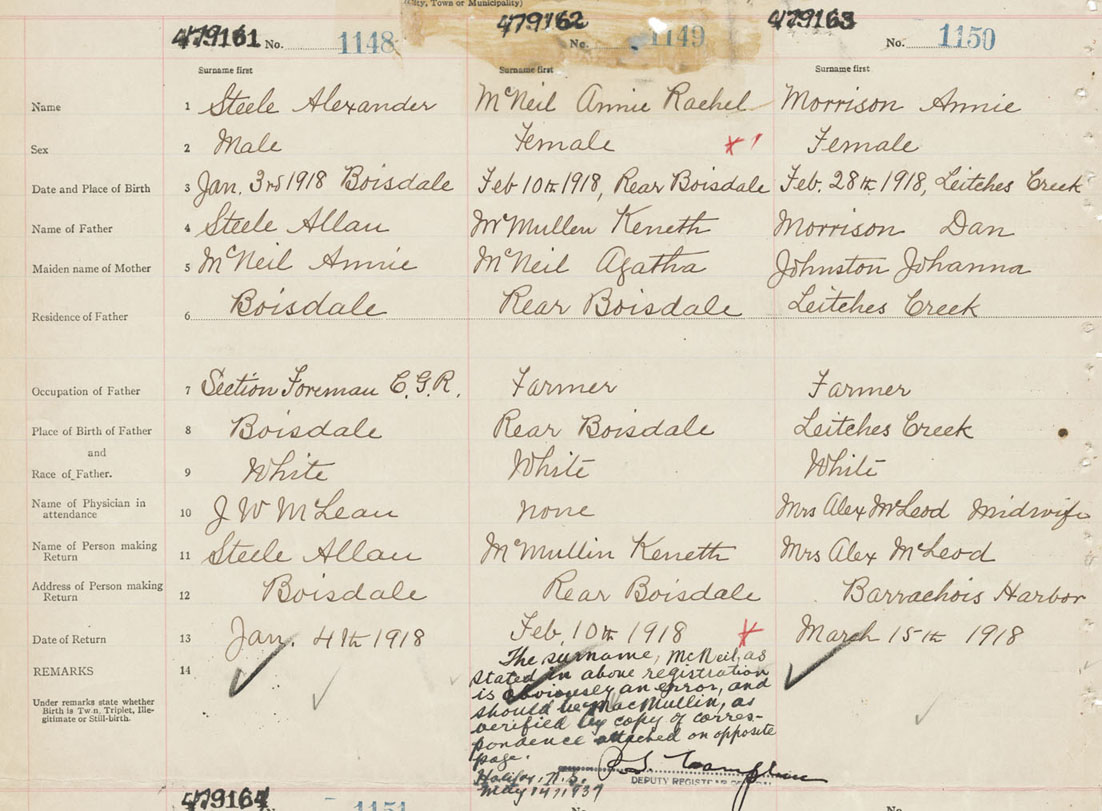 (City, Town or Municipality)
479161 No. 1148
479162 No. 1149
479163 No. 1150
Surname first Surname first Surname first
Name 1 Steele Alexander McNeil Annie Rachel Morrison Annie
Sex 2 Male Female Female
Date and Place of Birth 3 Jan. 3rd 1918 Boisdale Feb 10th 1918, Rear Boisdale Feb. 28th 1918, Leitches Creek
Name of Father 4 Steele Allan McMullen Keneth Morrison Dan
Maiden name of Mother 5 McNeil Annie McNeil Agatha Johnston Johanna
Residence of Father 6 Boisdale Rear Boisdale Leitches Creek
Occupation of Father 7 Section Foreman C.G.R. Farmer Farmer
Place of Birth of Father 8 Boisdale Rear Boisdale Leitches Creek
and
Race of Father. 9 White White White
Name of Physician in
attendance 10 J W McLean none Mrs Alex McLeod Midwife
Name of Person making
Return 11 Steele Allan McMullin Keneth Mrs Alex McLeod
Address of Person making
Return 12 Boisdale Rear Boisdale Barrachois Harbor
Date of Return 13 Jan. 4th 1918 Feb. 10th 1918 March 15th 1918
REMARKS 14
Under remarks state whether
Birth is Twin, Triplet, Ille-
gitimate or Still-birth.
The surname, McNeil, as
stated in above registration
is obviously an error, and
should be MacMullin, as
verified by copy of corres-
pondence attached on opposite
page.
Halifax, N.S.
May 14, 1937
DEPUTY REGISTRAR GENERAL
479164 No. 1151
No.
No.